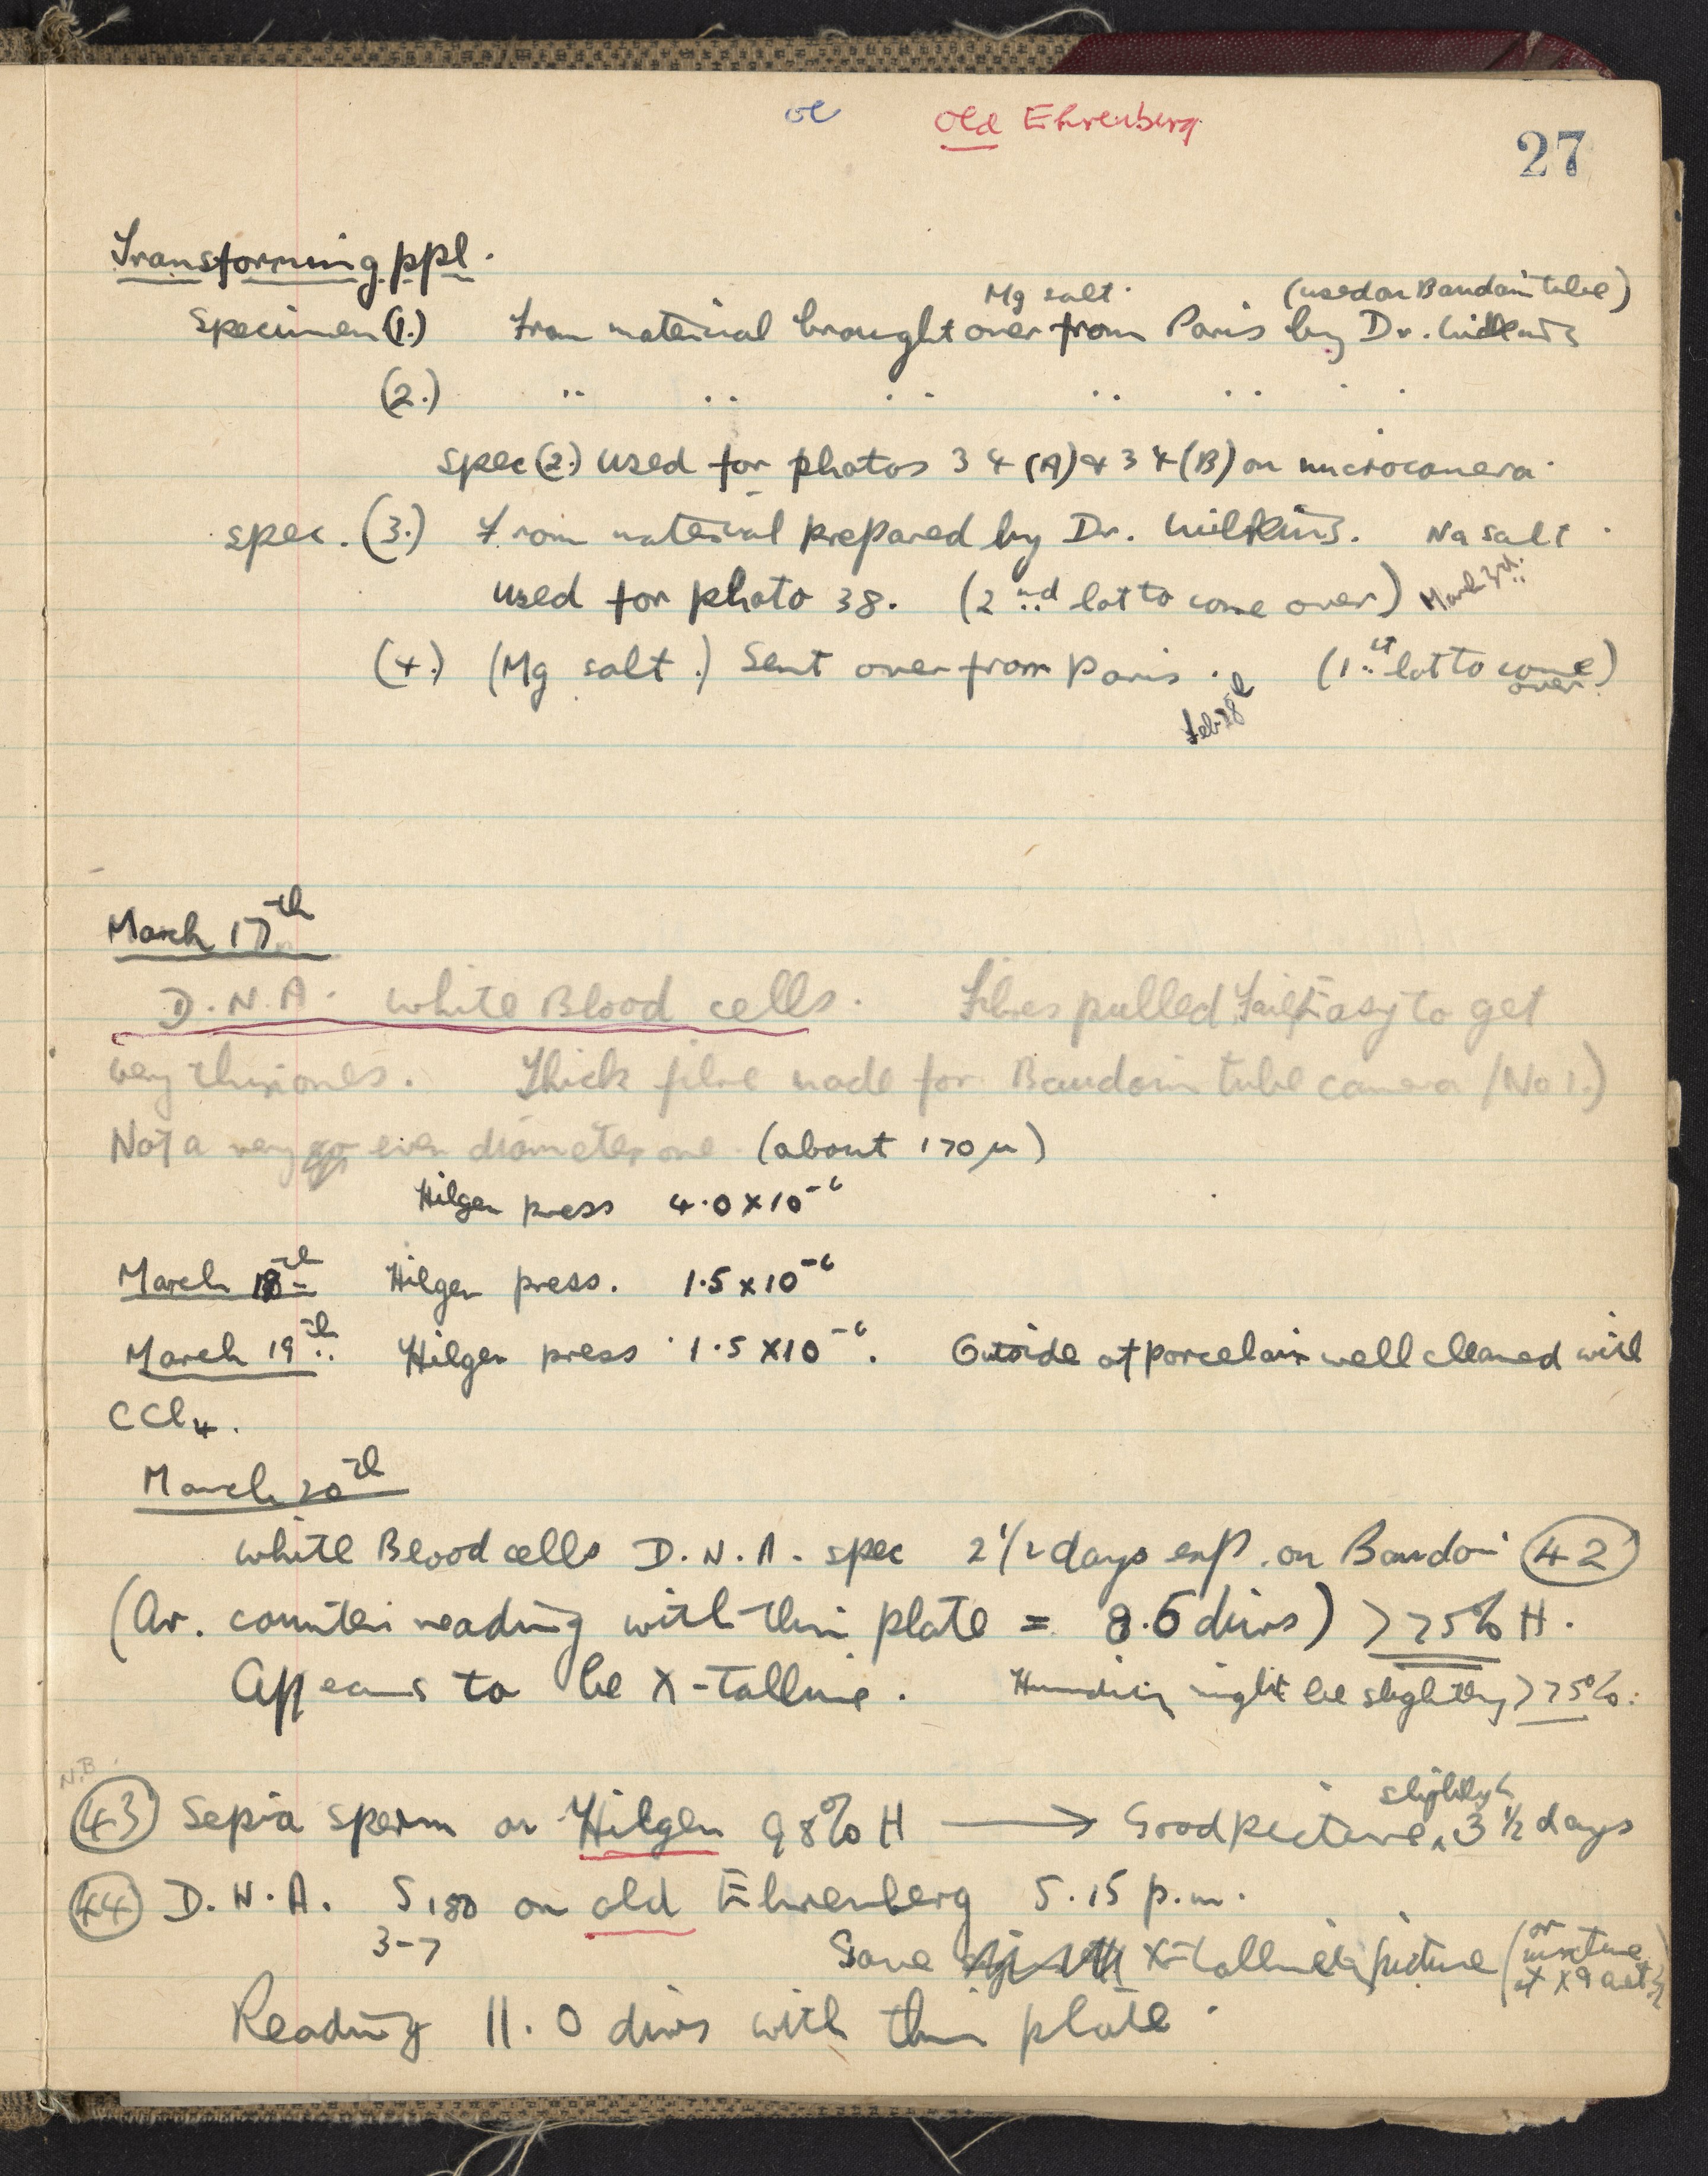 old Ehrenberg
27
Transforming ppl.
Mg salt. (used on Baudoin tube)
Specimen (1.) From material brought over from Paris by Dr. Wilkins
(2.) " " " " " " "
Spec (2.) used for photos 34 (A) & 34 (B) on microcamera.
spec. (3.) From material prepared by Dr. Wilkins. Na salt.
used for photo 38. (2nd lot to come over) March 3rd.
(4.) (Mg salt.) Sent over from Paris. (1st lot to come over.)
Feb 28th
March 17th
D.N.A. White Blood cells. Fibres pulled. Fairly easy to get
very thin ones. Thick fibre made for Baudoin tube camera (No 1.)
Not a very even diameter one (about 170 μ)
Hilger press 4.0 x 10-6
March 18th Hilger press. 1.5 x 10-6
March 19th Hilger press 1.5 x 10-6. Outside of porcelain well cleaned with
CCl4.
March 20th
White Blood cells D.N.A. spec 2 1/2 days exp. on Baudoin 42
(Av. counter reading with thin plate = 8.5 divs) >75% H.
Appears to be X-talline. Humidity might be slightly >75%.
N.B.
slightly <
43 Sepia sperm on Hilger 98% H → Good picture 3 1/2 days
44 D.N.A. S180 on old Ehrenberg 5.15 p.m.
3-7
Gave X-talline picture (or mixture of X &
Reading 11.0 divs with thin plate.